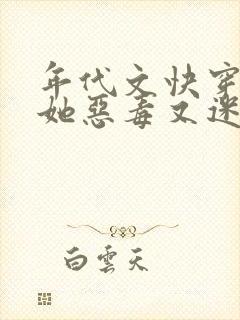 年代文快穿
她惡毒又迷
白雲天